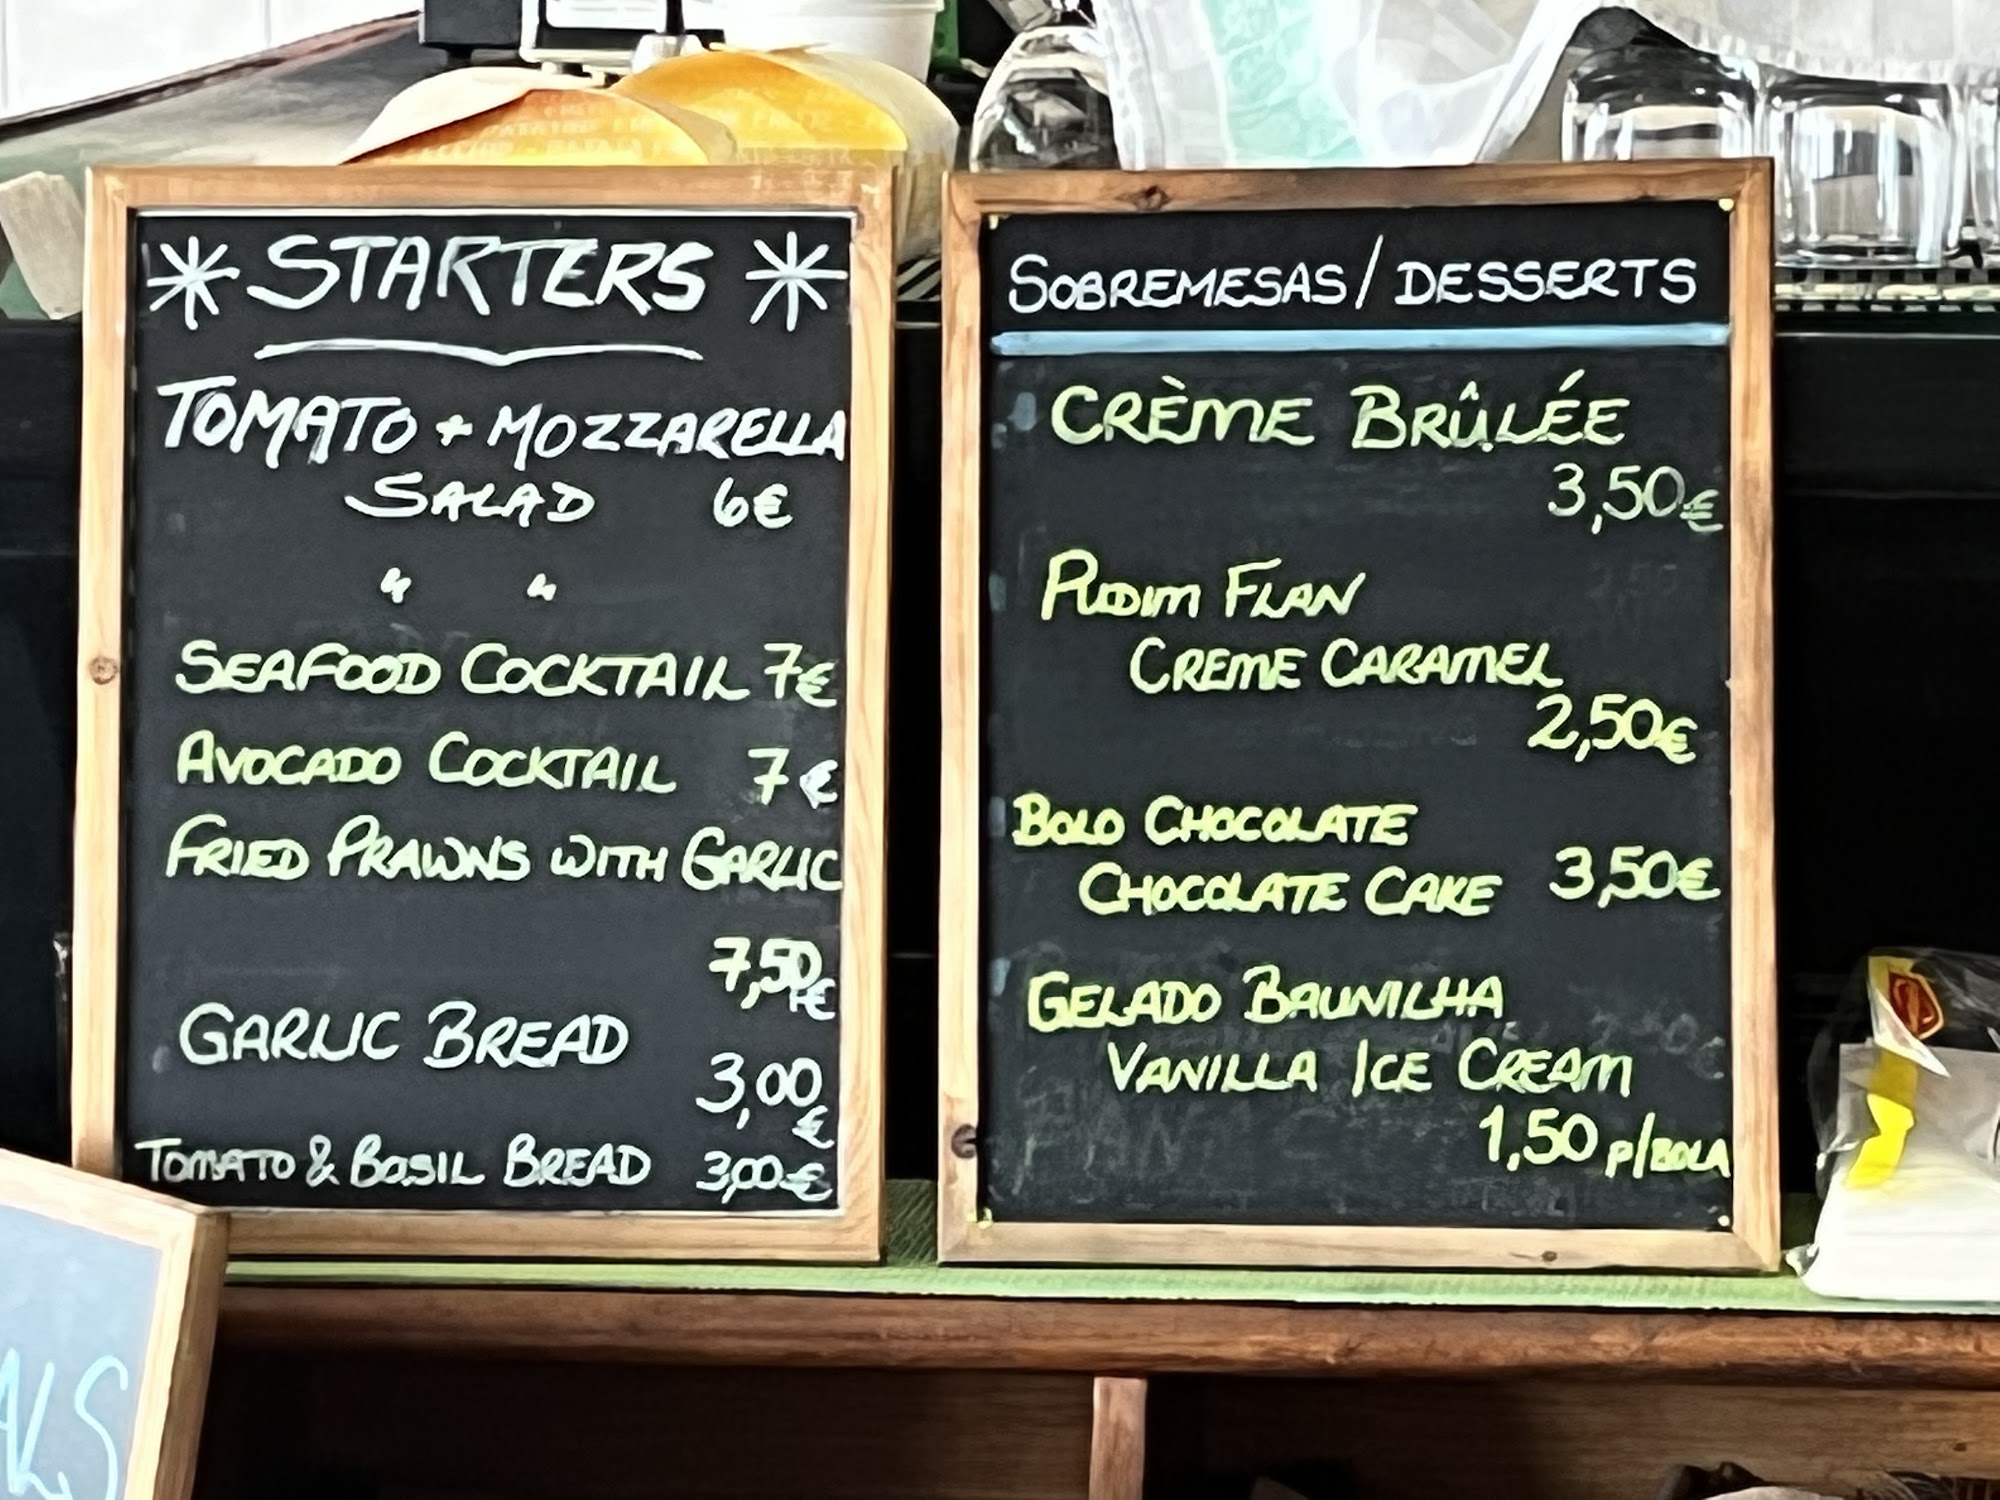 * STARTERS *
TOMATO + MOZZARELLA
SALAD 6€
" "
SEAFOOD COCKTAIL 7€
AVOCADO COCKTAIL 7€
FRIED PRAWNS WITH GARLIC
7,50€
GARLIC BREAD
3,00
€
TOMATO & BASIL BREAD 3,00€
SOBREMESAS / DESSERTS
CRÈME BRÛLÉE
3,50€
PUDIM FLAN
CREME CARAMEL
2,50€
BOLO CHOCOLATE
CHOCOLATE CAKE 3,50€
GELADO BAUNILHA
VANILLA ICE CREAM
1,50 P/BOLA
ALS